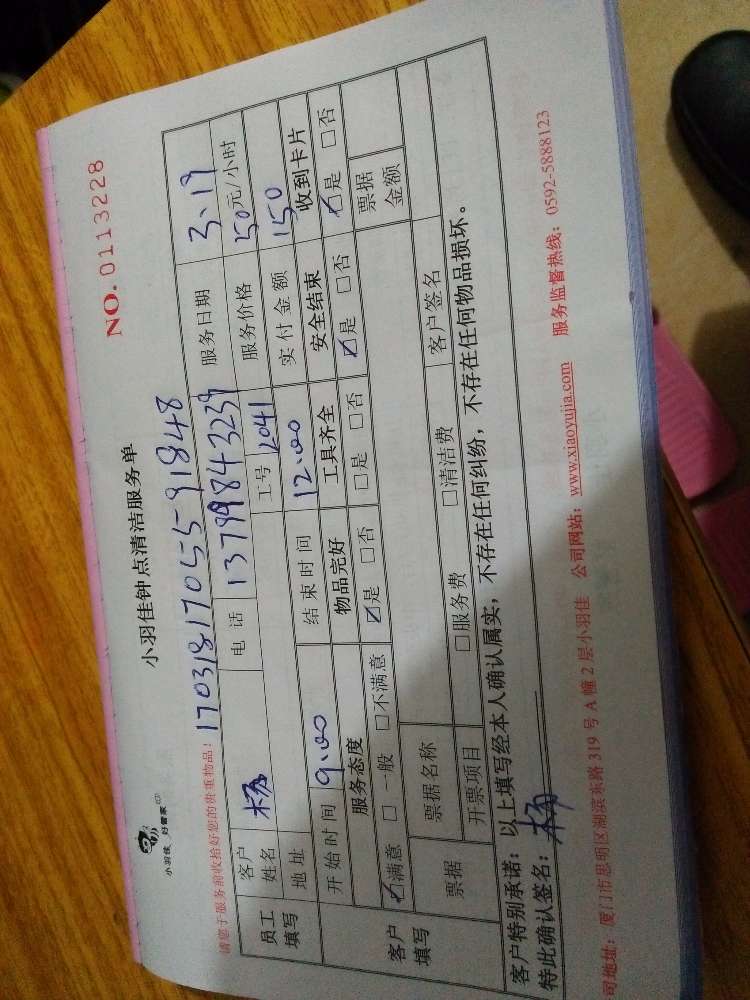 小羽佳 好管家
小羽佳钟点清洁服务单
NO. 0113228
请您于服务前收拾好您的贵重物品!
170318170559 1848
员工填写
客户姓名 杨 电话 13799843239 服务日期 3.19
地址 工号 2041 服务价格 50元/小时
开始时间 9:00 结束时间 12:00 实付金额 150
客户填写
服务态度 物品完好 工具齐全 安全结束 收到卡片
☑满意 □一般 □不满意 ☑是 □否 □是 □否 ☑是 □否 ☑是 □否
票据 票据名称 票据金额
开票项目 □服务费 □清洁费 客户签名
客户特别承诺:以上填写经本人确认属实,不存在任何纠纷,不存在任何物品损坏。
特此确认签名:杨
司地址:厦门市思明区湖滨东路319号A幢2层小羽佳 公司网站:www.xiaoyujia.com 服务监督热线:0592-5888123